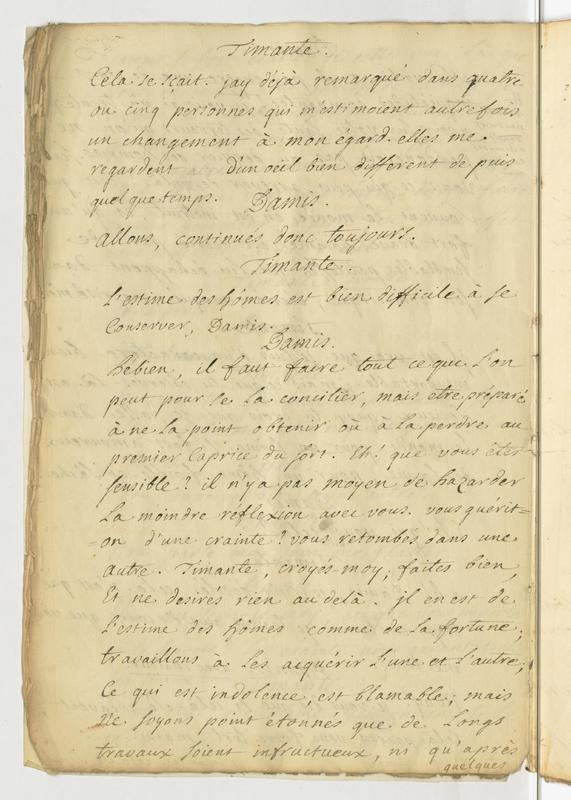 Timante.
Céla se sçait. jay déjà remarqué dans quatre
ou cinq personnes qui m'estimoient autrefois
un changement à mon égard. elles me
regardent d'un oeil bien different de puis
quelque temps. Damis.
allons, continués donc toujours.
Timante.
L'estime des hômes est bien difficile à se
Conserver, Damis.
Damis.
hébien, il faut faire tout ce que L'on
peut pour se La concilier, mais etre préparé
à ne La point obtenir où à La perdre au
premier Caprice du sort. Eh! que vous êtes
sensible? il n'y a pas moyen de hazarder
La moindre réflexion avec vous. vous guérit=
=on d'une crainte? vous retombés dans une
autre. Timante, croyés-moy; faites bien,
Et ne desirés rien au delà. jl en est de
L'estime des hômes comme de La fortune;
travaillons à Les acquérir L'une et L'autre;
Ce qui est indolence, est blamable; mais
Ne soyons point étonnés que de Longs
travaux soient infructueux, ni qu'après
quelques